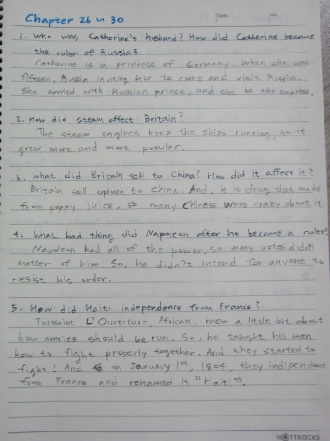 Chapter 26 ~ 30
Date. No.
1. Who was Catherine's husband? How did Catherine became
the ruler of Russia?
Catherine is a princess of Germany. When she was
fifteen, Russia inviting her to come and visit Russia.
She married with Russian prince, and she be the empress.
2. How did steam affect Britain?
The steam engines keep the ships running, so it
grew more and more popular.
3. What did Britain sell to China? How did it affect it?
Britain sell opium to China. And, it is drug that made
from poppy juice, so many Chinese were crazy about it.
4. What bad thing did Napoleon after he became a ruler?
Napoleon had all of the power, so many votes didn't
matter of him. So, he didn't intend for anyone to
resist his order.
5. How did Haiti independence from France?
Toussaint L'Ouverture, African, knew a little bit about
how armies should be run. So, he taught his men
how to fight properly together. And they started to
fight! And on January 1st, 1804, they independent
from France and renamed it "Haiti".
HOTTRACKS